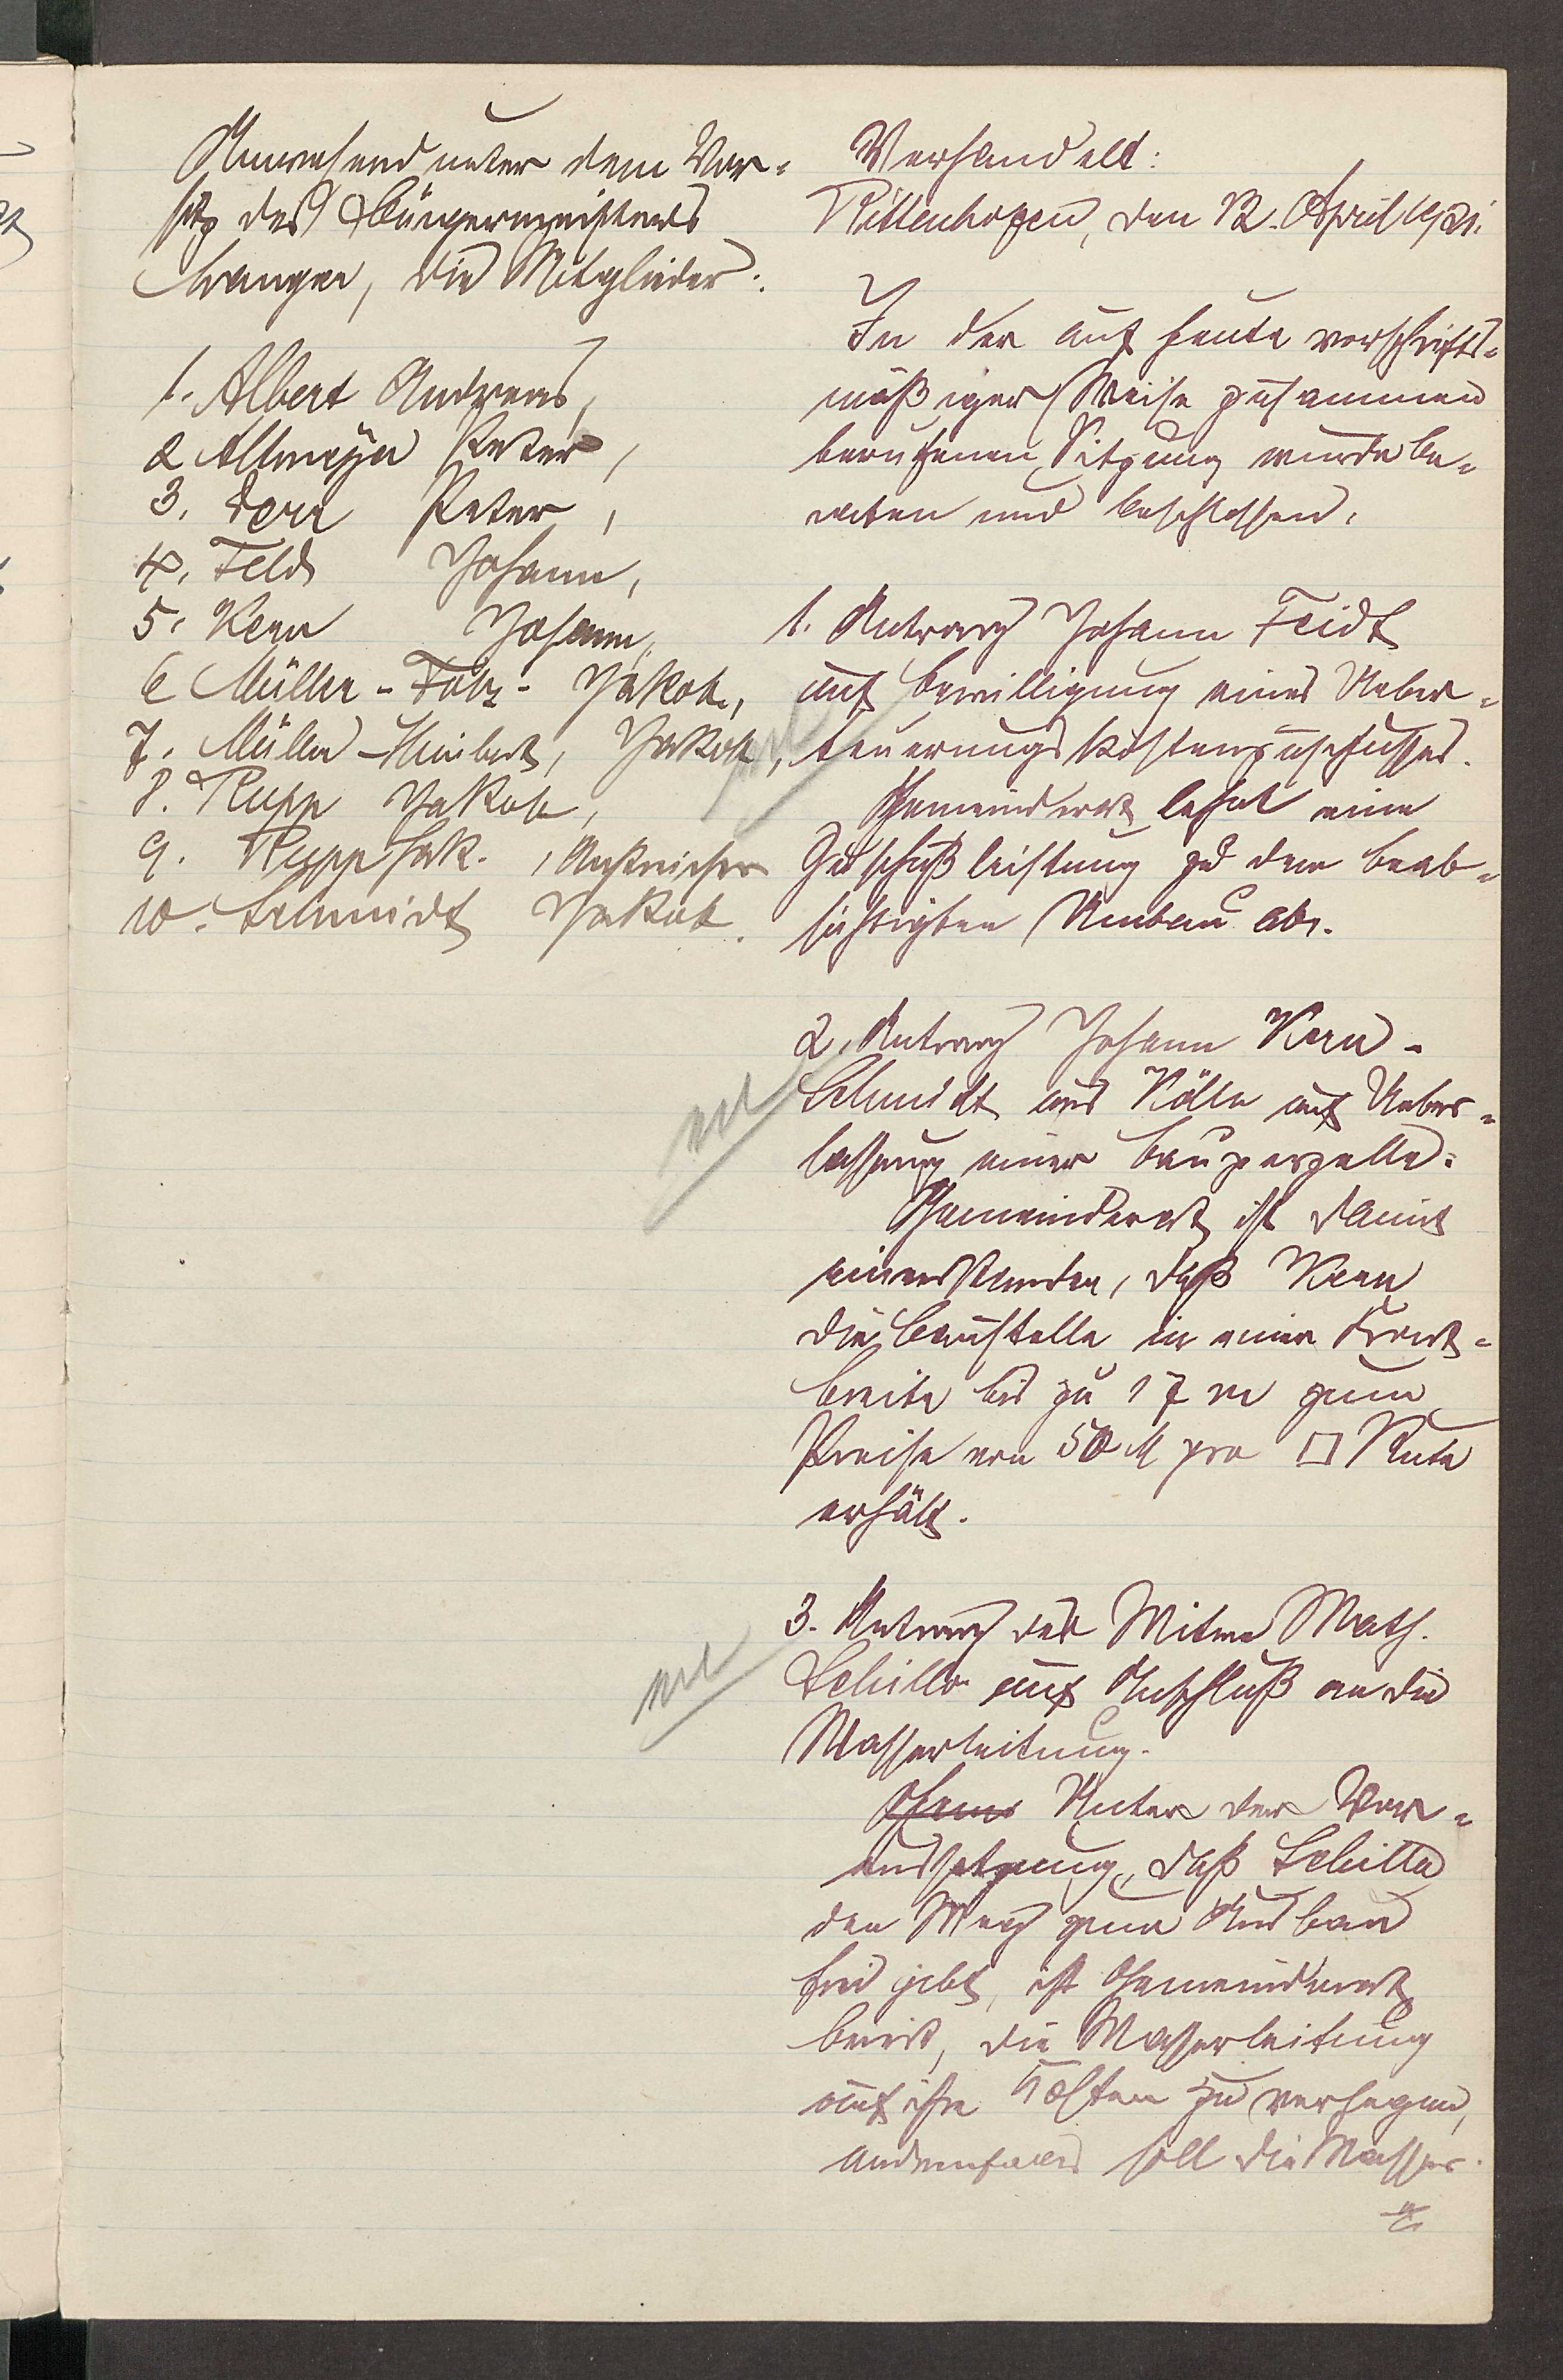 Anwesend unter dem Vor-
sitz des Bürgermeisters
Wanger, die Mitglieder:
1. Albert Andreas,
2 Altmeyer Peter,
3. Dörr Peter,
4. Feld Johann,
5. Kern Johann,
6 Müller-Folz- Jakob,
7. Müller-Kimbert, Jakob,
8. Rupp Jakob,
9. Rupp Jak., Anstreicher
10. Schmidt Jakob.
Verhandelt:
Rittenhofen, den 12. April 1921.
In der auf heute vorschrifts-
mäßiger Weise zusammen
berufenen Sitzung wurde be-
raten und beschlossen:
1. Antrag Johann Feidt
auf Bewilligung eines Ueber-
teuerungskostenzuschusses.
Gemeinderat lehnt eine
Zuschußleistung zu dem beab-
sichtigten Umbau ab.
2. Antrag Johann Kern-
Schmidt aus Kölln auf Ueber-
lassung einer Bauparzelle.
Gemeinderat ist damit
einverstanden, daß Kern
die Baustelle in einer Front-
breite bis zu 17 m zum
Preise von 50 M pro □ Rute
erhält.
3. Antrag der Witwe Math.
Schillo auf Anschluß an die
Wasserleitung.
Gem Unter der Vor-
aussetzung, daß Schillo
den Weg zum Ausbau
frei gibt, ist Gemeinderat
bereit, die Wasserleitung
auf ihre Kosten zu verlegen,
andernfalls soll die Wasser-